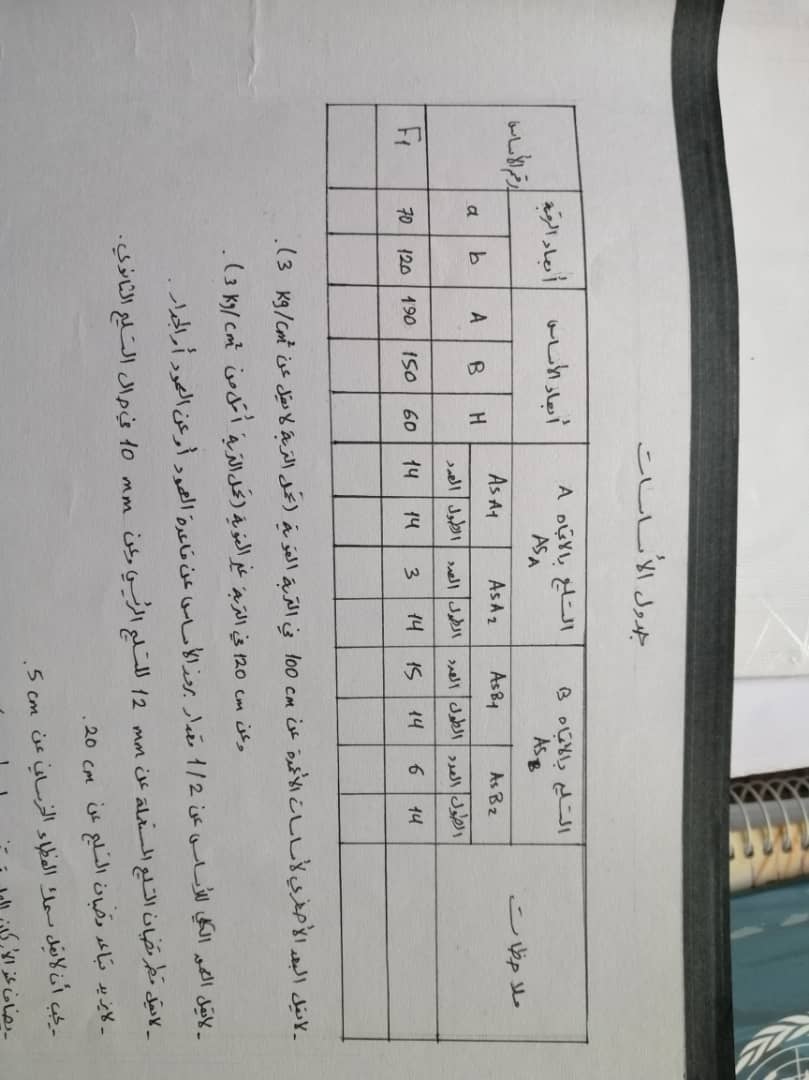 جدول الأساسات
رقم الأساس | أبعاد الرقبة | أبعاد الأساس | التسليح بالاتجاه A AsA | التسليح بالاتجاه B AsB | ملاحظات
a | b | A | B | H | AsA1 | AsA2 | AsB1 | AsB2
العدد | الطول | العدد | الطول | العدد | الطول | العدد | الطول
F1 | 70 | 120 | 190 | 150 | 60 | 14 | 14 | 3 | 14 | 15 | 14 | 6 | 14
- لا يقل البعد الأصغري لأساسات الأعمدة عن 100 cm في التربة القوية (تحمل التربة لا يقل عن 3 kg/cm²).
وعن 120 cm في التربة غير القوية (تحمل التربة أقل من 3 kg/cm²).
- لا يقل العمق الكلي للأساس عن 1/2 مقدار بروز الأساس عن قاعدة العمود أو عن العمود أو الجدار.
- لا يقل قطر قضبان التسليح المستعملة عن 12 mm للتسليح الرئيسي وعن 10 mm في حال التسليح الثانوي.
- لا يزيد تباعد قضبان التسليح عن 20 cm.
- يجب أن لا يقل سمك الغطاء الخرساني عن 5 cm.